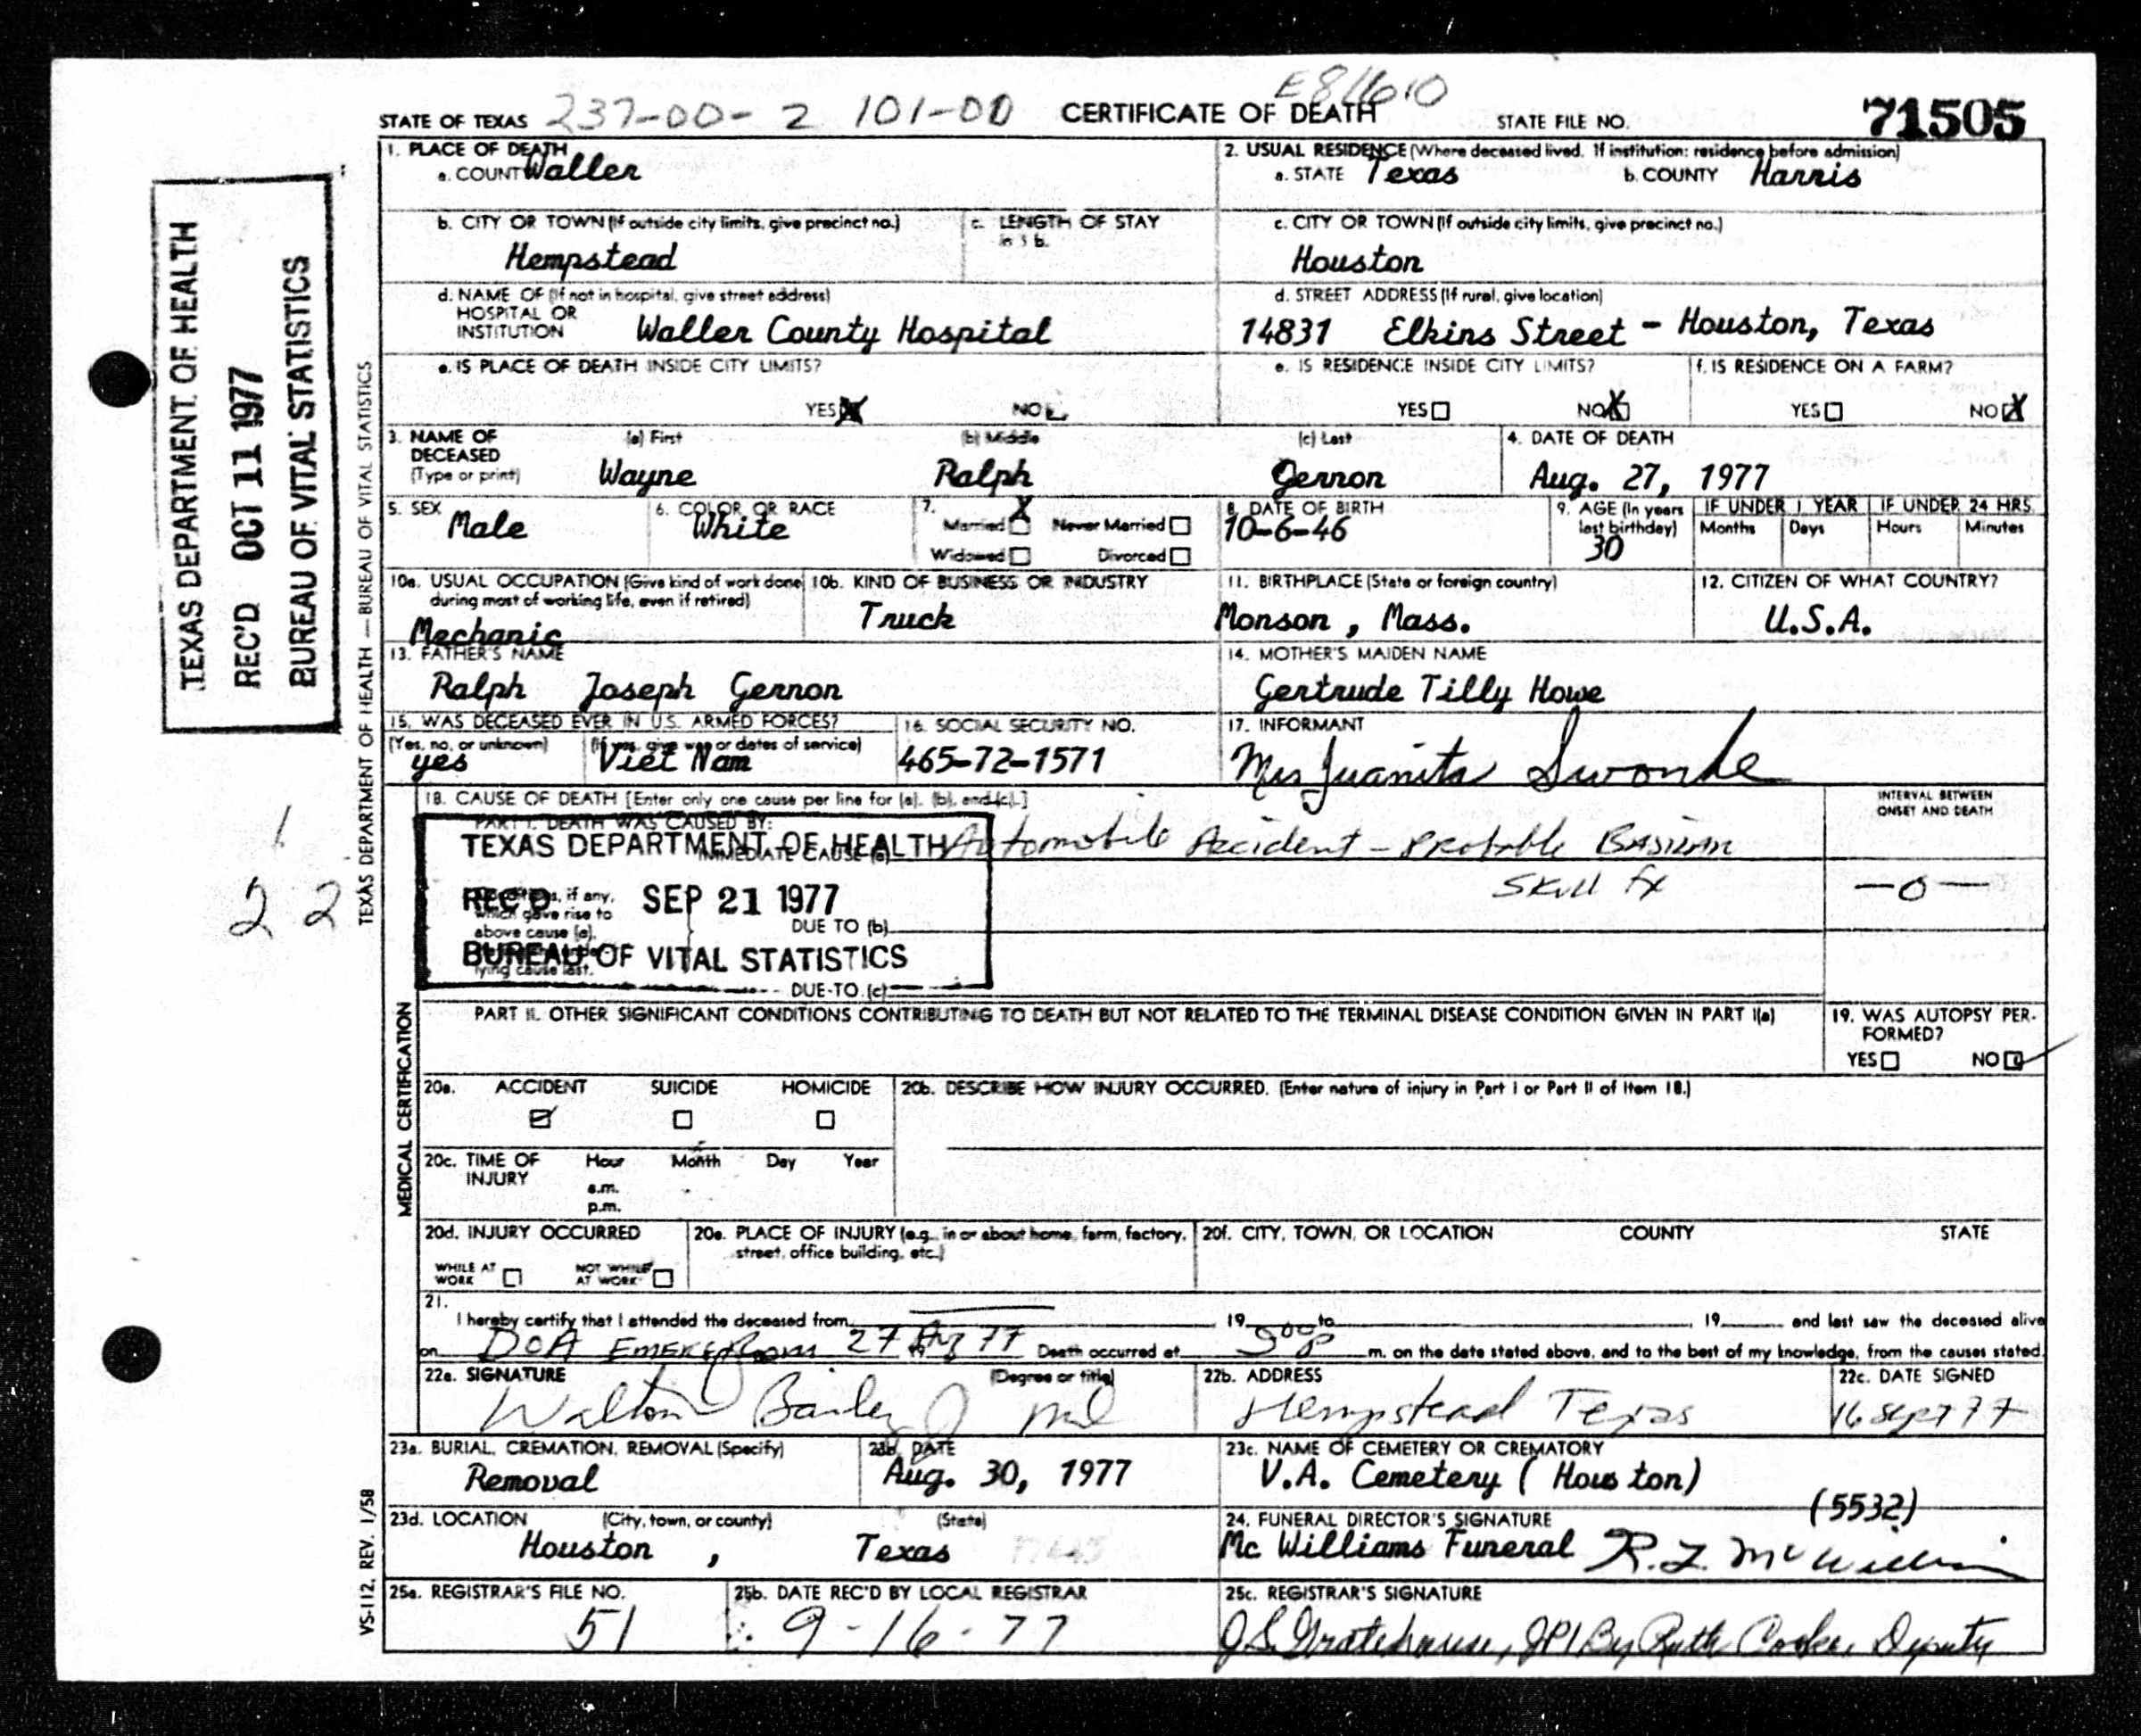 STATE OF TEXAS 237-00-2 101-00 CERTIFICATE OF DEATH STATE FILE NO. 71505
1. PLACE OF DEATH
a. COUNT Waller
2. USUAL RESIDENCE (Where deceased lived. If institution: residence before admission)
a. STATE Texas b. COUNTY Harris
b. CITY OR TOWN (If outside city limits, give precinct no.)
Hempstead
c. LENGTH OF STAY
in 1 b.
c. CITY OR TOWN (If outside city limits, give precinct no.)
Houston
d. NAME OF (If not in hospital, give street address)
HOSPITAL OR
INSTITUTION Waller County Hospital
d. STREET ADDRESS (If rural, give location)
14831 Elkins Street - Houston, Texas
e. IS PLACE OF DEATH INSIDE CITY LIMITS?
YES X NO
e. IS RESIDENCE INSIDE CITY LIMITS?
YES NO X
f. IS RESIDENCE ON A FARM?
YES NO X
3. NAME OF
DECEASED
(Type or print)
(a) First (b) Middle (c) Last
Wayne Ralph Gernon
4. DATE OF DEATH
Aug. 27, 1977
5. SEX
Male
6. COLOR OR RACE
White
7. X
Married Never Married
Widowed Divorced
8. DATE OF BIRTH
10-6-46
9. AGE (In years
last birthday)
30
IF UNDER 1 YEAR
Months Days
IF UNDER 24 HRS.
Hours Minutes
10a. USUAL OCCUPATION (Give kind of work done
during most of working life, even if retired)
Mechanic
10b. KIND OF BUSINESS OR INDUSTRY
Truck
11. BIRTHPLACE (State or foreign country)
Monson, Mass.
12. CITIZEN OF WHAT COUNTRY?
U.S.A.
13. FATHER'S NAME
Ralph Joseph Gernon
14. MOTHER'S MAIDEN NAME
Gertrude Tilly Howe
15. WAS DECEASED EVER IN U.S. ARMED FORCES?
(Yes, no, or unknown) (If yes, give war or dates of service)
yes Viet Nam
16. SOCIAL SECURITY NO.
465-72-1571
17. INFORMANT
Mrs Juanita
18. CAUSE OF DEATH [Enter only one cause per line for (a), (b), and (c).]
PART I. DEATH WAS CAUSED BY:
IMMEDIATE CAUSE (a) Automobile Accident - Probable Basilar
Skull fx
INTERVAL BETWEEN
ONSET AND DEATH
-0-
TEXAS DEPARTMENT OF HEALTH
REC'D SEP 21 1977
BUREAU OF VITAL STATISTICS
if any,
which gave rise to
above cause (a),
lying cause last.
DUE TO (b)
DUE TO (c)
PART II. OTHER SIGNIFICANT CONDITIONS CONTRIBUTING TO DEATH BUT NOT RELATED TO THE TERMINAL DISEASE CONDITION GIVEN IN PART I(a)
19. WAS AUTOPSY PER-
FORMED?
YES NO
20a. ACCIDENT SUICIDE HOMICIDE
20b. DESCRIBE HOW INJURY OCCURRED. (Enter nature of injury in Part I or Part II of Item 18.)
20c. TIME OF
INJURY
Hour Month Day Year
a.m.
p.m.
20d. INJURY OCCURRED
WHILE AT
WORK
NOT WHILE
AT WORK
20e. PLACE OF INJURY (e.g., in or about home, farm, factory,
street, office building, etc.)
20f. CITY, TOWN, OR LOCATION COUNTY STATE
21.
I hereby certify that I attended the deceased from 19 to , 19 and last saw the deceased alive
on DOA Emerg Room 27 Aug 77 Death occurred at 5:00 p m. on the date stated above, and to the best of my knowledge, from the causes stated.
22a. SIGNATURE (Degree or title)
Walton Bailey MD
22b. ADDRESS
Hempstead Texas
22c. DATE SIGNED
16 Sept 77
23a. BURIAL, CREMATION, REMOVAL (Specify)
Removal
23b. DATE
Aug. 30, 1977
23c. NAME OF CEMETERY OR CREMATORY
V.A. Cemetery (Houston)
23d. LOCATION (City, town, or county) (State)
Houston, Texas
24. FUNERAL DIRECTOR'S SIGNATURE (5532)
Mc Williams Funeral R.L. McWilliams
25a. REGISTRAR'S FILE NO.
51
25b. DATE REC'D BY LOCAL REGISTRAR
9-16-77
25c. REGISTRAR'S SIGNATURE
By Ruth Deputy
TEXAS DEPARTMENT OF HEALTH
REC'D OCT 11 1977
BUREAU OF VITAL STATISTICS
TEXAS DEPARTMENT OF HEALTH — BUREAU OF VITAL STATISTICS
MEDICAL CERTIFICATION
VS-112, REV. 1/58
1
2 2